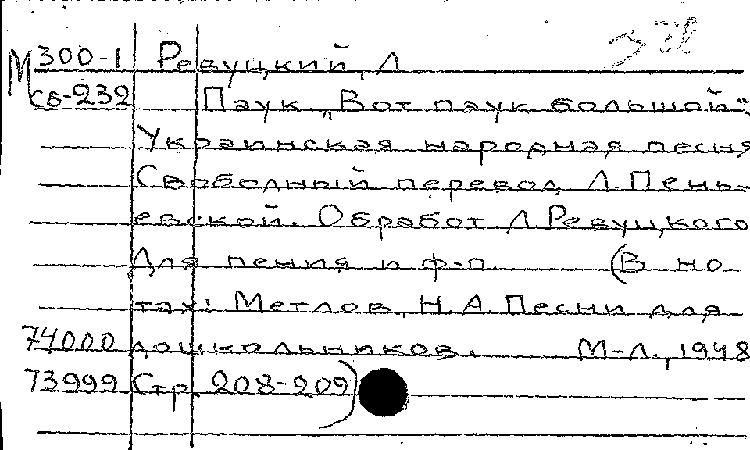 М 300-1 Ревуцкий, Л
Сб-232 Паук „Вот паук большой"
Украинская народная песня
Свободный перевод Л Пень-
евской. Обработ Л Ревуцкого
Для пения и ф-п. (В но
тах: Метлов, Н. А Песни для
74000 дошкольников. М-Л., 1948
73999 Стр. 208-209)